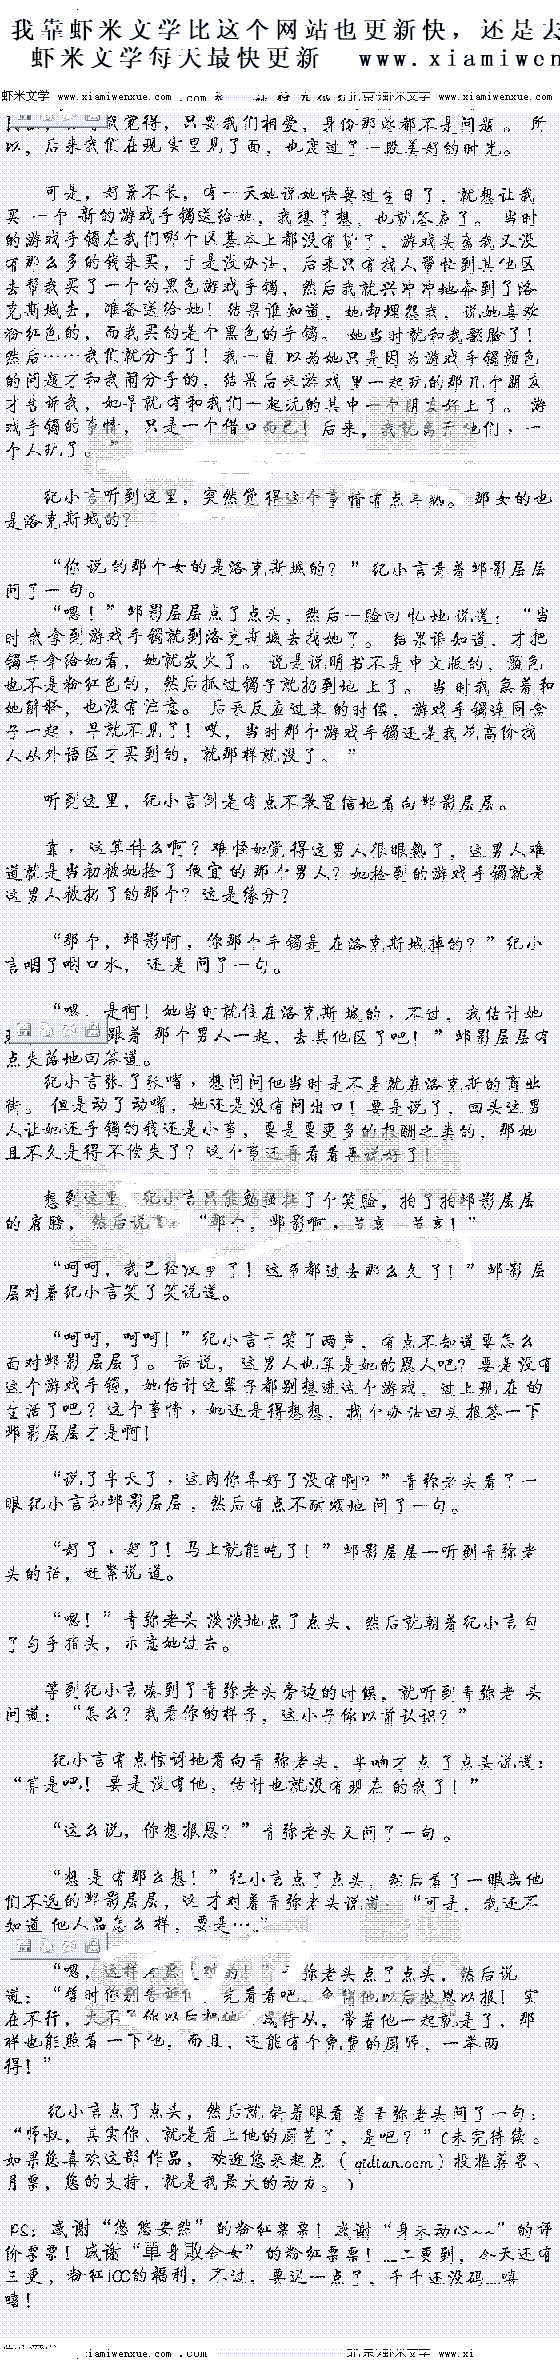 我靠虾米文学比这个网站也更新快，还是去
虾米文学每天最快更新 www.xiamiwen
虾米文学 www.xiamiwenxue.com .com 虾米文学 www.xiamiwenxue.com
觉得，只要我们相爱，身份那些都不是问题。所
以，后来我们在现实里见了面，也度过了一段美好的时光。
可是，好景不长，有一天她说她快要过生日了，就想让我
买一个新的游戏手镯送给她，我想了想，也就答应了。当时
的游戏手镯在我们哪个区基本上都没有货了，游戏头盔我又没
有那么多的钱来买，于是没办法，后来只有找人帮忙到其他区
去帮我买了一个的黑色游戏手镯，然后我就兴冲冲地奔到了洛
克斯城去，准备送给她！结果谁知道，她却埋怨我，说她喜欢
粉红色的，而我买的是个黑色的手镯。她当时就和我翻脸了！
然后……我们就分手了！我一直以为她只是因为游戏手镯颜色
的问题才和我闹分手的，结果后来游戏里一起玩的那几个朋友
才告诉我，她早就有和我们一起玩的其中一个朋友好上了。游
戏手镯的事情，只是一个借口而已！后来，我就离开他们，一
个人玩了。”
纪小言听到这里，突然觉得这个事情有点耳熟。那女的也
是洛克斯城的？
“你说的那个女的是洛克斯城的？”纪小言看着邺影层层
问了一句。
“嗯！”邺影层层点了点头，然后一脸回忆地说道：“当
时我拿到游戏手镯就到洛克斯城去找她了。结果谁知道，才把
镯子拿给她看，她就发火了。说是说明书不是中文版的，颜色
也不是粉红色的，然后抓过镯子就扔到地上了。当时我急着和
她解释，也没有注意。后来反应过来的时候，游戏手镯连同盒
子一起，早就不见了！哎，当时那个游戏手镯还是我花高价找
人从外语区才买到的，就那样就没了。”
听到这里，纪小言倒是有点不敢置信地看向邺影层层。
靠，这算什么啊？难怪她觉得这男人很眼熟了，这男人难
道就是当初被她捡了便宜的那个男人？她捡到的游戏手镯就是
这男人被扔了的那个？这是缘分？
“那个，邺影啊，你那个手镯是在洛克斯城掉的？”纪小
言咽了咽口水，还是问了一句。
“嗯，是啊！她当时就住在洛克斯城的，不过，我估计她
跟着那个男人一起，去其他区了吧！”邺影层层有
点失落地回答道。
纪小言张了张嘴，想问问他当时是不是就在洛克斯的商业
街。但是动了动嘴，她还是没有问出口！要是说了，回头这男
人让她还手镯的钱还是小事，要是要更多的报酬之类的，那她
且不久是得不偿失了？这个事还再看看再说好了！
想到这里，纪小言只能勉强扯了个笑脸，拍了拍邺影层层
的肩膀，然后说道：“那个，邺影啊，节哀，节哀！”
“呵呵，我已经没事了！这事都过去那么久了！”邺影层
层对着纪小言笑了笑说道。
“呵呵，呵呵！”纪小言干笑了两声，有点不知道要怎么
面对邺影层层了。话说，这男人也算是她的恩人吧？要是没有
这个游戏手镯，她估计这辈子都别想进这个游戏，过上现在的
生活了吧？这个事情，她还是得想想，找个办法回头报答一下
邺影层层才是啊！
“说了半天了，这肉你弄好了没有啊？”青弥老头看了一
眼纪小言和邺影层层，然后有点不耐烦地问了一句。
“好了，好了！马上就能吃了！”邺影层层一听到青弥老
头的话，赶紧说道。
“嗯！”青弥老头淡淡地点了点头，然后就朝着纪小言勾
了勾手指头，示意她过去。
等到纪小言凑到了青弥老头旁边的时候，就听到青弥老头
问道：“怎么？我看你的样子，这小子你以前认识？”
纪小言有点惊讶地看向青弥老头，半响才点了点头说道：
“算是吧！要是没有他，估计也就没有现在的我了！”
“这么说，你想报恩？”青弥老头又问了一句。
“想是有那么想！”纪小言点了点头，然后看了一眼离他
们不远的邺影层层，这才对着青弥老头说道：“可是，我还不
知道他人品怎么样，要是…”
“嗯，这样弥老头点了点头，然后说
道：“暂时你别告诉他，先看看吧，免得他以后挟恩以报！实
在不行，大不了你以后把他侍从，带着他一起就是了，那
样也能照着一下他，而且，还能有个免费的厨师，一举两
得！”
纪小言点了点头，然后就斜着眼看着青弥老头问了一句：
“师叔，其实你，就是看上他的厨艺了，是吧？”（未完待续。
如果您喜欢这部作品，欢迎您来起点（qidian.com）投推荐票、
月票，您的支持，就是我最大的动力。）
PS：感谢“悠悠安然”的粉红票票！感谢“身未动心~~”的评
价票票！感谢“单身败金女”的粉红票票！二更到，今天还有
三更，粉红100的福利，不过，要迟一点了，千千还没码…嘻
嘻！
xiamiwenxue.com .com 虾米文学 www.xi